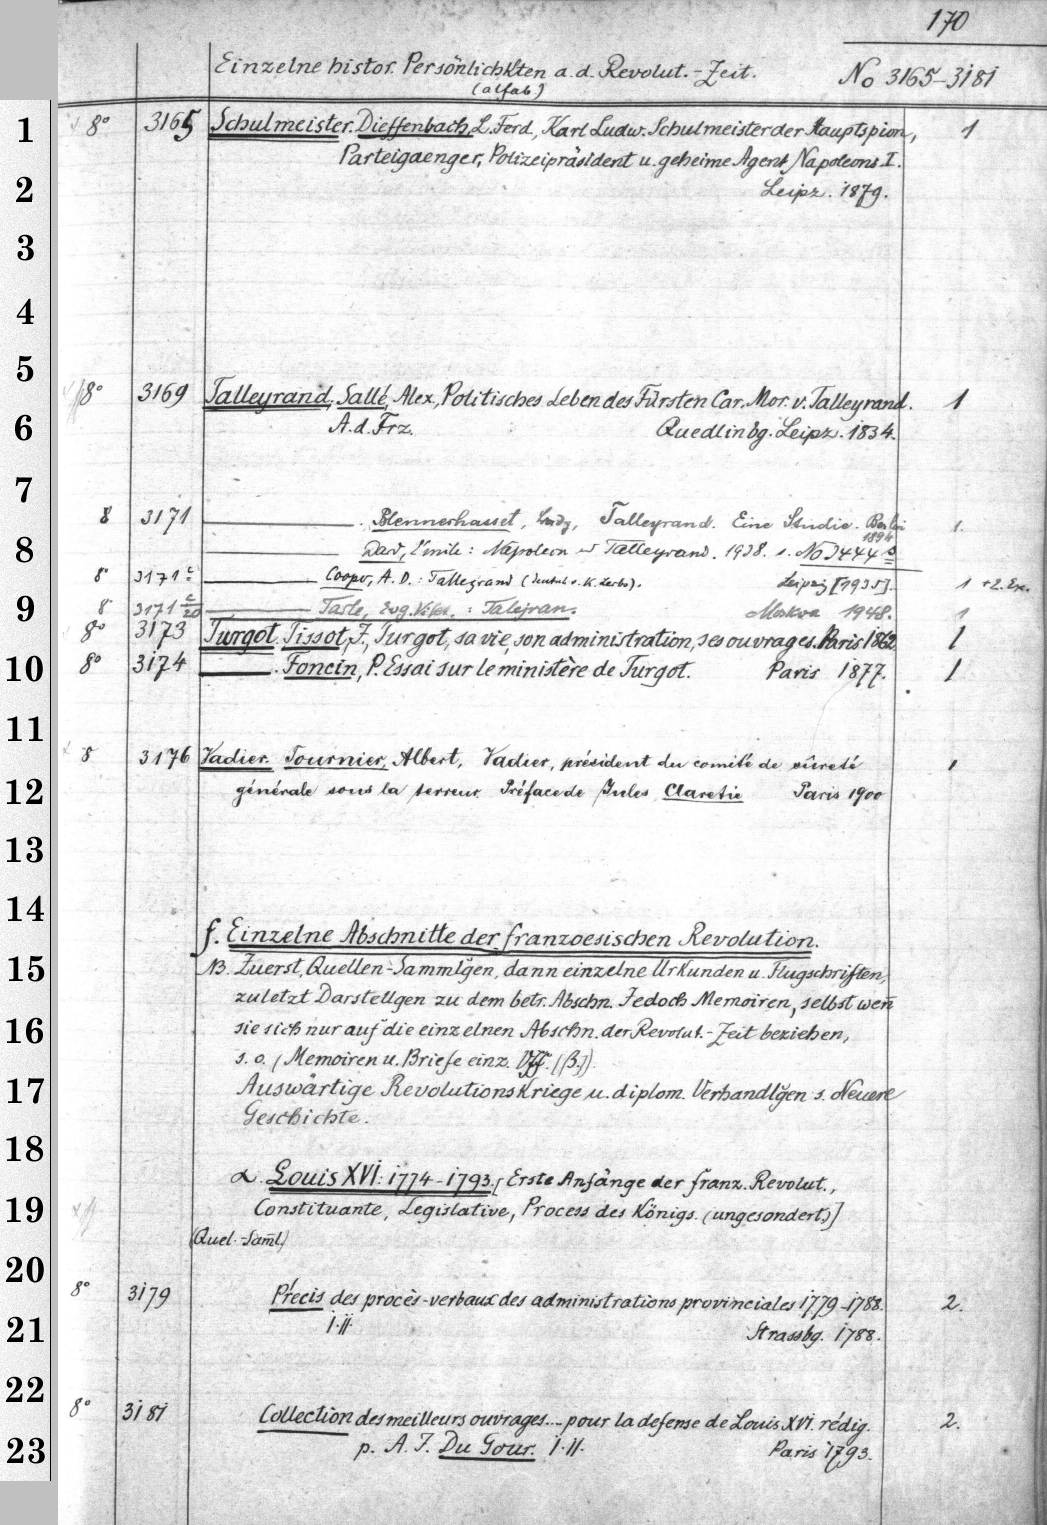 170
Einzelne histor. Persönlichkten a. d. Revolut.-Zeit.
(alfab)
No 3165-3181
1 8° 3165 Schulmeister. Dieffenbach, L. Ferd, Karl Ludw. Schulmeister der Hauptspion, 1
Parteigaenger, Polizeipräsident u. geheime Agent Napoleons I.
2 Leipz. 1879.
3
4
5
8° 3169 Talleyrand, Sallé, Alex, Politisches Leben des Fürsten Car. Mor. v. Talleyrand. 1
6 A. d. Frz. Quedlinbg. Leipz. 1834.
7
8 3171 Blennerhasset, Lady, Talleyrand. Eine Studie. Berlin 1.
1894
8 Dard, Emile: Napoleon Talleyrand. 1938. s. No 3444
8° 3171 Cooper, A. D.: Talleyrand (Deutsch v. K. Lerbs). Leipzig [1935]. 1 + 2. Ex.
9 8° 3171 Tarle, Evg. : Talejran. Moskva 1948. 1
8° 3173 Turgot. Tissot, J., Turgot, sa vie, son administration, ses ouvrages. Paris 1862 1
10 8° 3174 Foncin, P. Essai sur le ministère de Turgot. Paris 1877. 1
11
8 3176 Vadier. Tournier, Albert, Vadier, président du comité de sûreté 1
12 générale sous la terreur. Préface de Jules Claretie Paris 1900
13
14
f. Einzelne Abschnitte der franzoesischen Revolution.
15 NB. Zuerst, Quellen-Sammlgen, dann einzelne Urkunden u. Flugschriften,
zuletzt Darstellgen zu dem betr. Abschn. Jedoch Memoiren, selbst weñ
16 sie sich nur auf die einzelnen Abschn. der Revolut.-Zeit beziehen,
s. o. (Memoiren u. Briefe einz. Vff. (β.)).
17 Auswärtige Revolutionskriege u. diplom. Verhandlgen s. Neuere
Geschichte.
18
α. Louis XVI: 1774-1793. [Erste Anfänge der franz. Revolut.,
19 Constituante, Legislative, Process des Königs. (ungesondert)]
(Quel.-Saml)
20
8° 3179 Précis des procès-verbaux des administrations provinciales 1779-1788. 2.
21 I. II. Strassbg. 1788.
22
8° 3181 Collection des meilleurs ouvrages.... pour la defense de Louis XVI. rédig. 2.
23 p. A. J. Du Gour. I. II. Paris 1793.